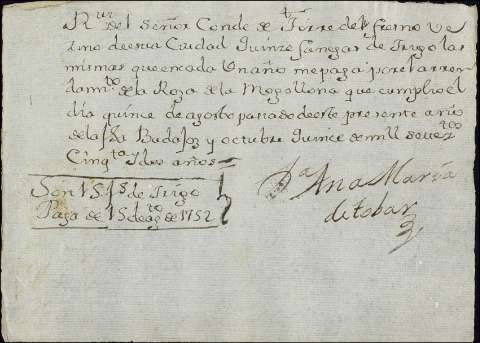 Rvi del Señor Conde de la Torre del Fresno Ve
zino de esta Ciudad Quinze fanegas de trigo las
mismas que en cada Un año me paga por el arren
damto de la Roza de la Mogollona que cumplio el
dia quince de agosto pasado de este presente año
de la fha Badajoz y octubre Quince de mill Setez
Cinqta y dos años
Son 15 fs de Trigo
Paga de 15 de agto de 1752
Da Ana Maria
de tobar